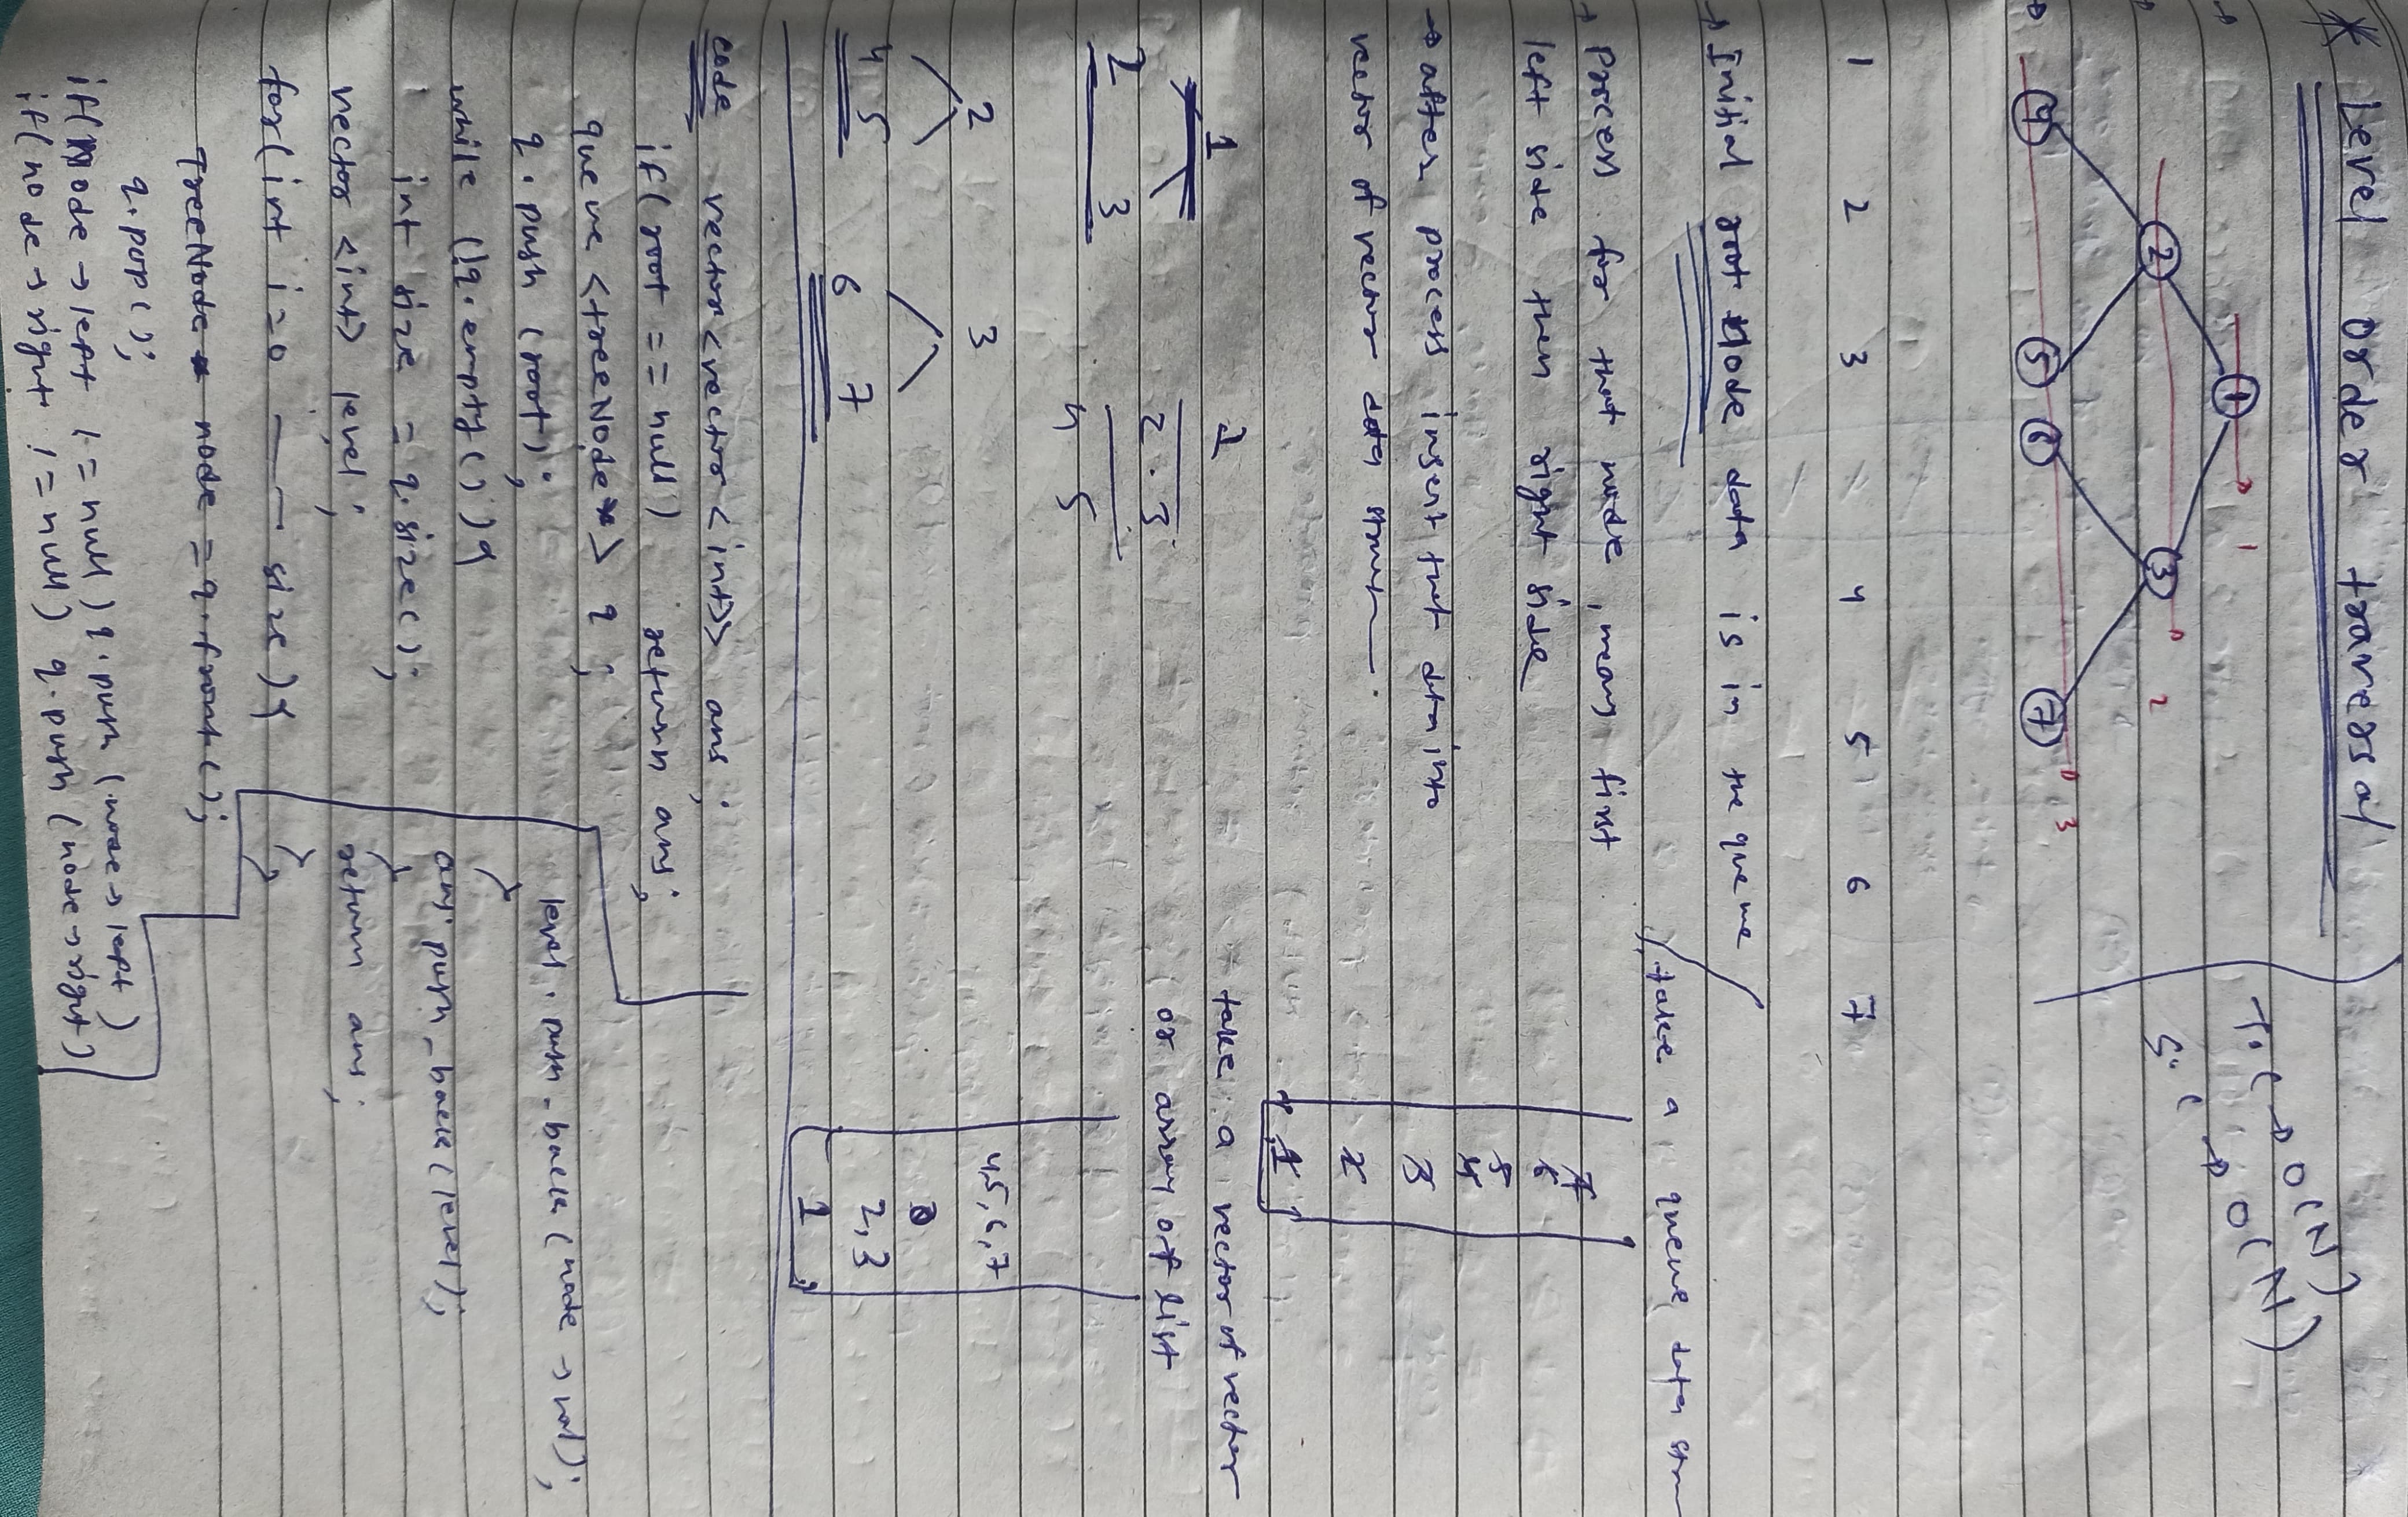 * Level order traversal
T.C → O(N)
S.C → O(N)
1 → 1
2 3 → 2
4 5 6 7 → 3
1 2 3 4 5 6 7
→ Initial root Node data is in the queue
take a queue data stru
→ Process for that node, mean first
left side then right side
→ after process insert that data into
vector of vector data struct
7
6
5
4
3
2
1
1 2
2 3 2.3
4 5
take a vector of vector
or array of list
2 3
4 5 6 7
4,5,6,7
2,3
1
code vector<vector<int>> ans;
if(root == null) return ans;
queue <treeNode*> q;
q.push (root);
while (!q.empty()){
int size = q.size();
vector <int> level;
for(int i=0 — size){
TreeNode* node = q.front();
q.pop();
if(Node→left != null) q.push (node→left)
if(node→right != null) q.push (node→right)
level.push_back (node→val);
}
ans.push_back(level);
}
return ans;
}